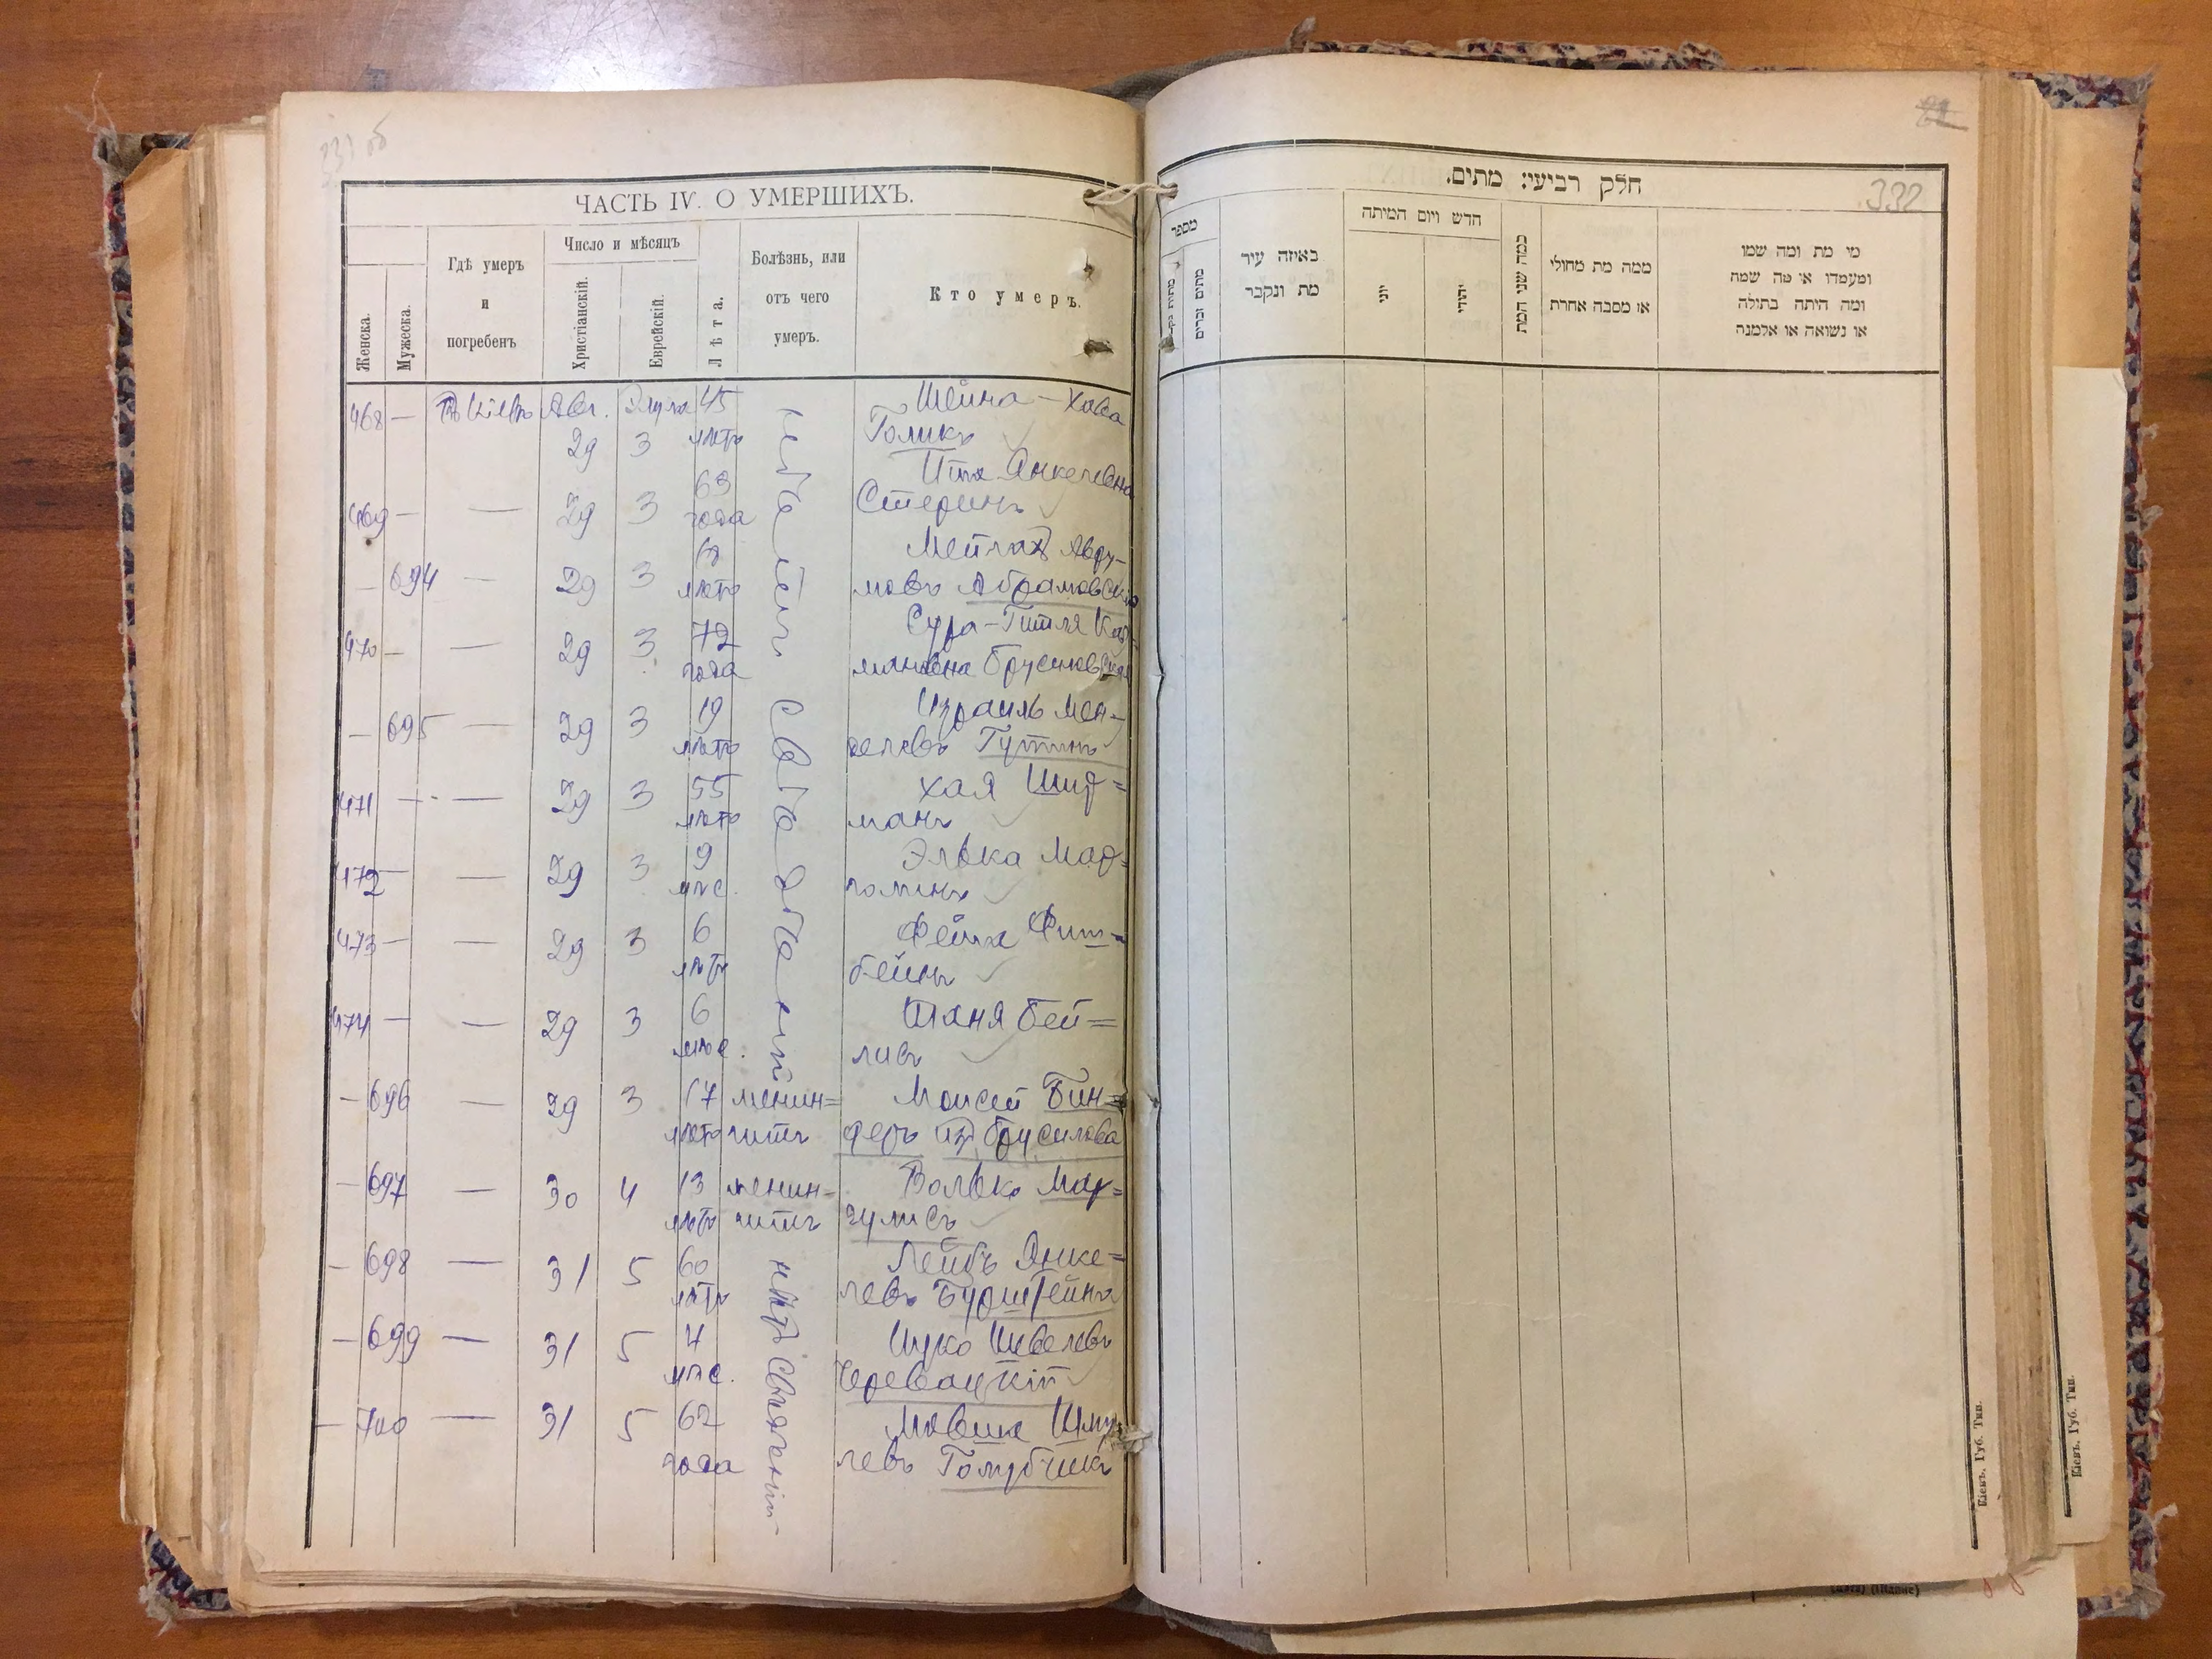 331 об
ЧАСТЬ IV. О УМЕРШИХЪ.
Женска.
Мужеска.
Гдѣ умеръ
и
погребенъ
Число и мѣсяцъ
Христіанскій.
Еврейскій.
Лѣта.
Болѣзнь, или
отъ чего
умеръ.
Кто умеръ.
468 — Въ Кіевѣ Авг. Элула 45 Шейна-Хова
29 3 лѣтъ Голикъ
Итта Янкелевна
469 — — 29 3 63 года Стеринъ
Мейлах Авру-
— 694 — 29 3 лѣтъ мовъ Абрамовскій
Сура-Гитля Кал-
470 — — 29 3 72 года мановна Брусиловская
Израиль Мен-
— 695 — 29 3 19 лѣтъ делевъ Гутинъ
471 — — 29 3 55 Хая Шиф=
лѣтъ манъ
472 — — 29 3 9 Элька Мар=
мѣс. голинъ
473 — — 29 3 6 Фейга Фиш=
лѣтъ бейнъ
474 — — 29 3 6 Шаня Бей=
мѣс. лисъ
нѣтъ свѣдѣній
— 696 — 29 3 17 менин= Моисей Бин=
лѣтъ гитъ деръ из Брусилова
— 697 — 30 4 13 менин= Волько Мар=
лѣтъ гитъ гулисъ
— 698 — 31 5 60 Лейбъ Янке=
лѣтъ левъ Бурштейнъ
— 699 — 31 5 Ицко
мѣс. Черевацкій
— 700 — 31 5 62 Мовша Шму
года левъ Голубчикъ
332
חלק רביעי: מתים.
מספר
מתים זכרים
באיזה עיר
מת ונקבר
חדש ויום המיתה
יוני
יהודי
כמה שני המת
ממה מת מחולי
או מסבה אחרת
מי מת ומה שמו
ומעמדו או מה שמה
ומה היתה בתולה
או נשואה או אלמנה
Кіевъ, Губ. Тип.
Кіевъ, Губ. Тип.